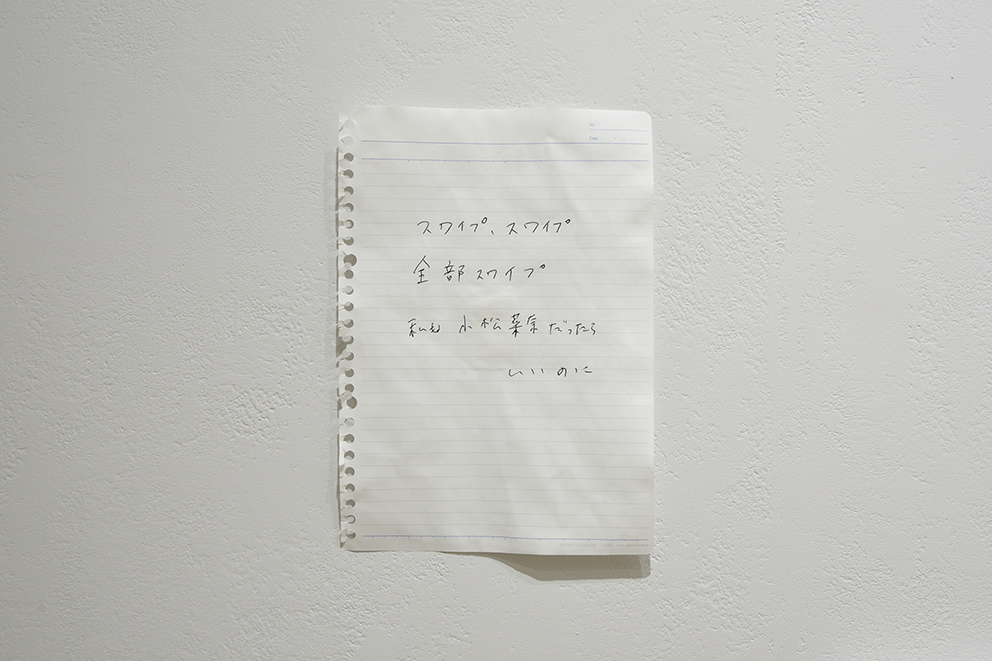 No.
Date
スワイプ、スワイプ
全部スワイプ
私も 小松菜奈だったら
いいのに